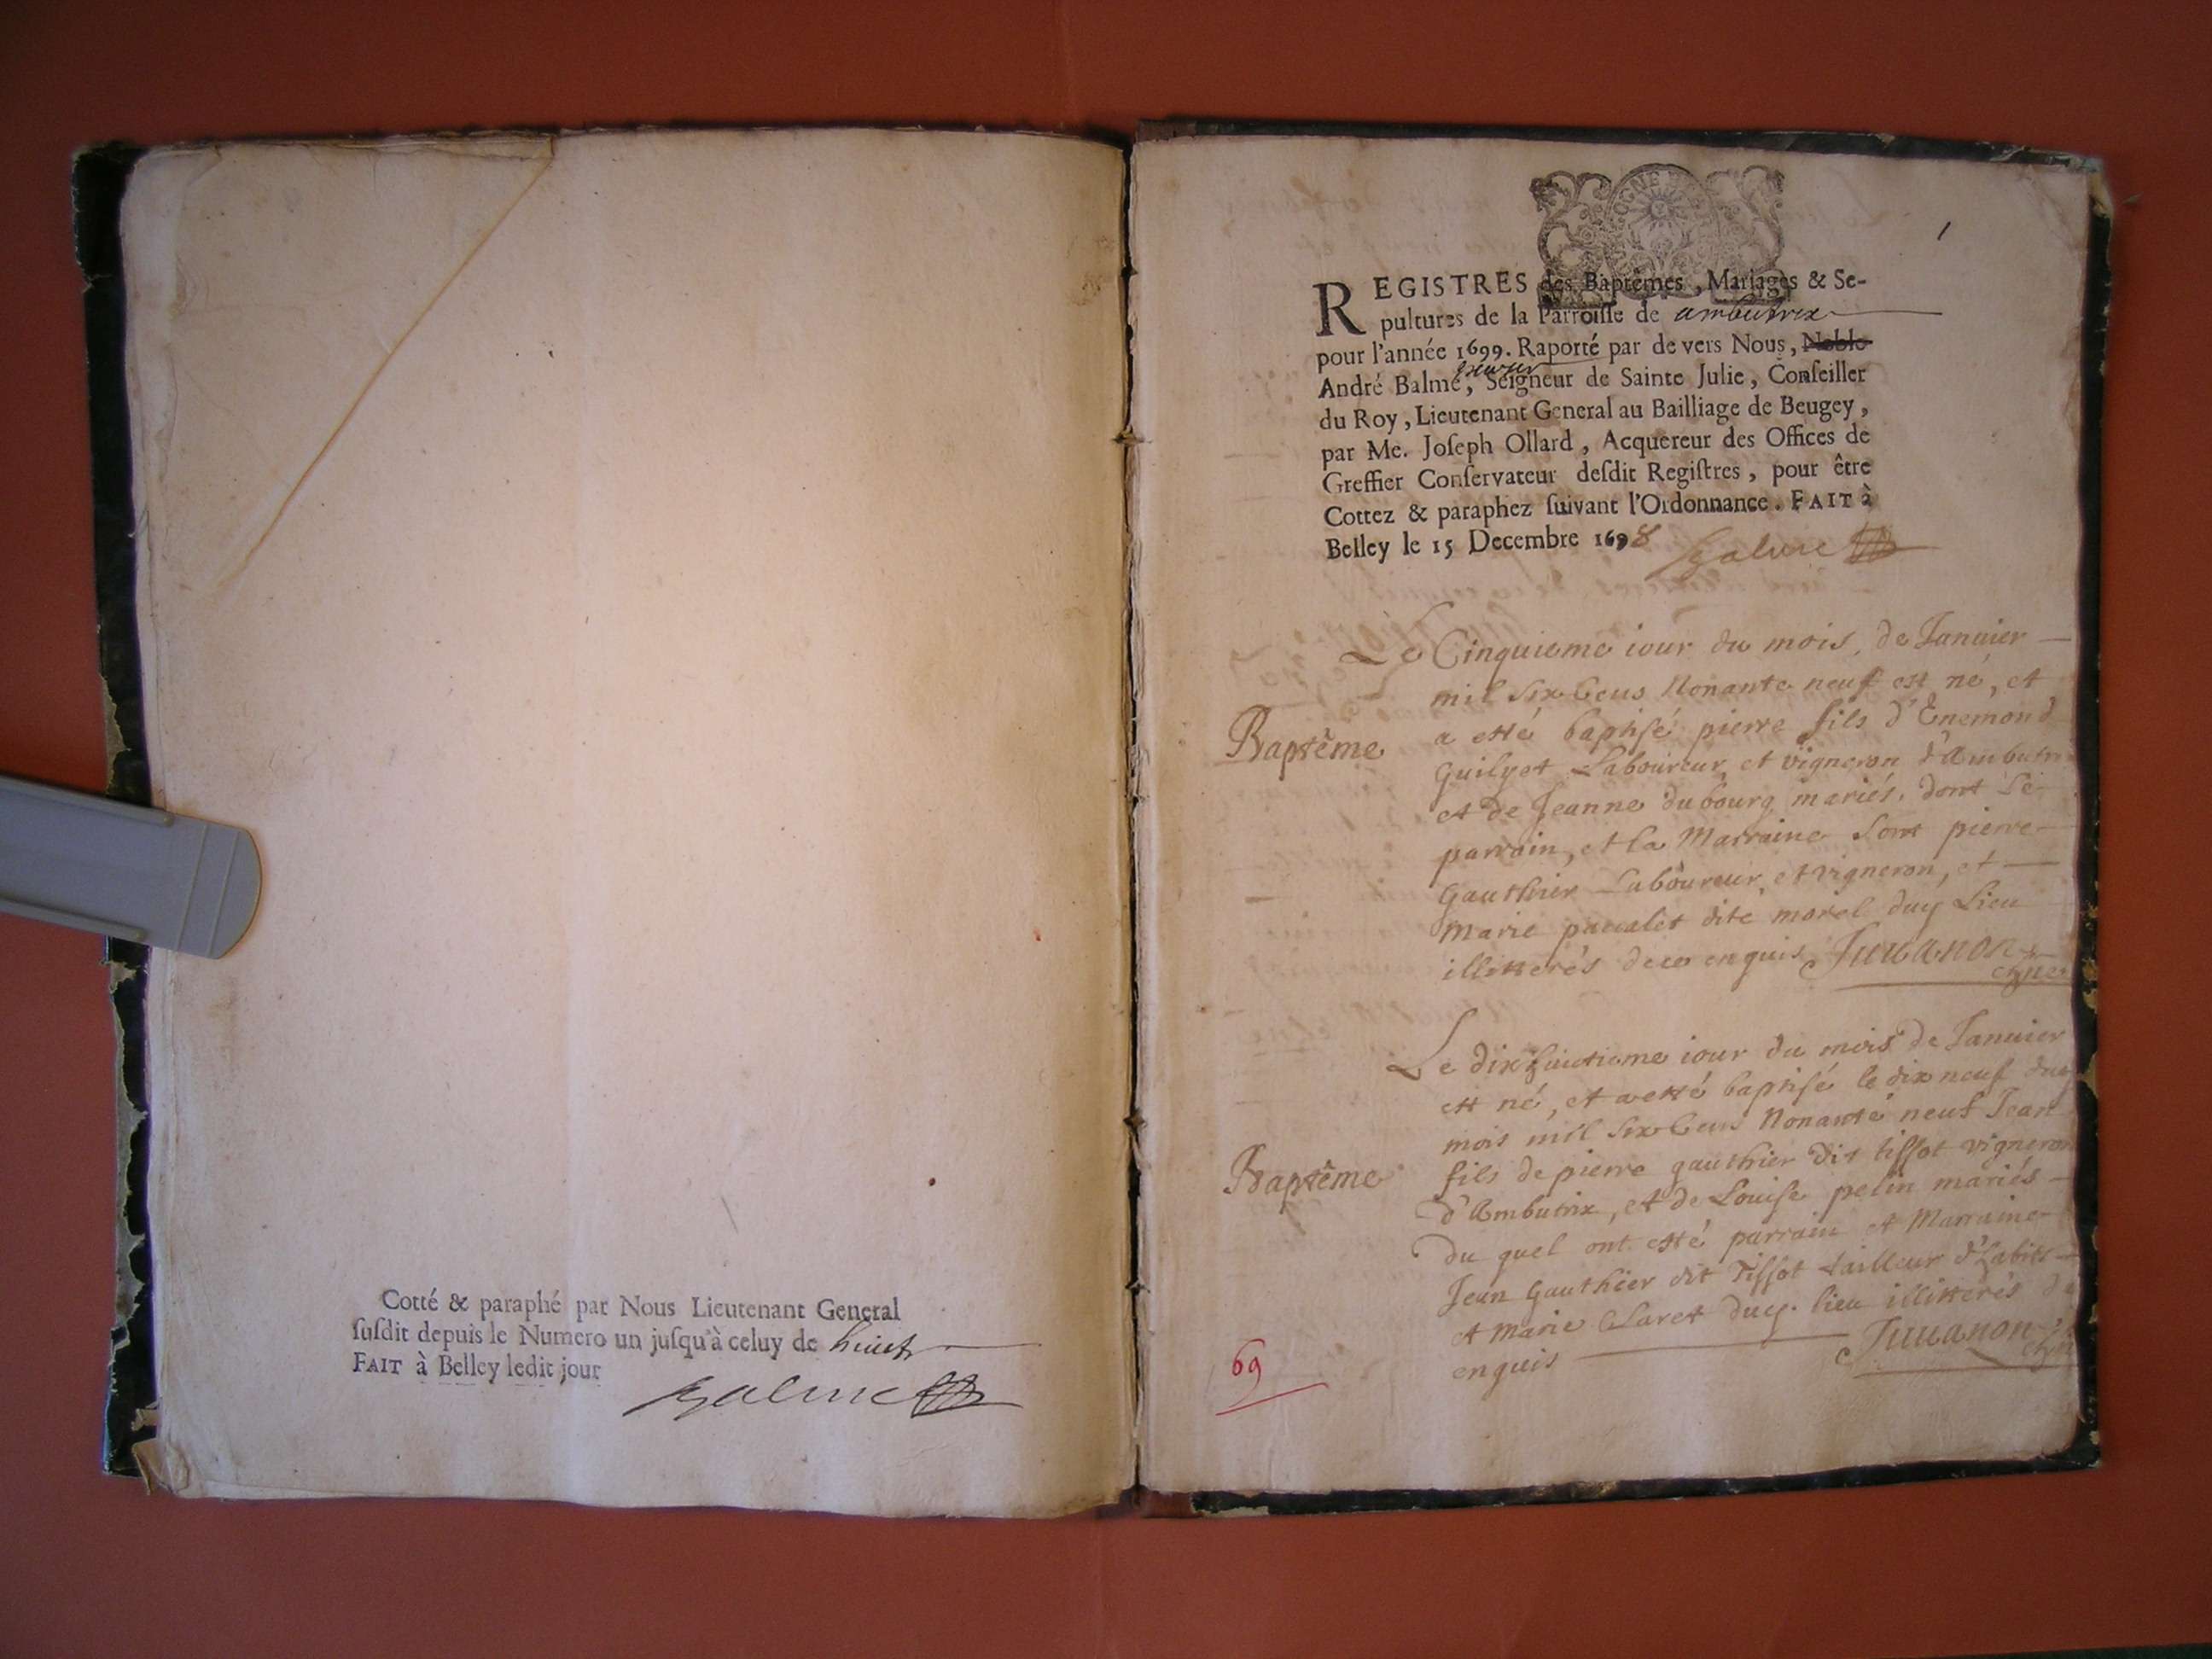 Cotté & paraphé par Nous Lieutenant General
ſuſdit depuis le Numero un juſqu'à celuy de huict
FAIT à Belley ledit jour
Balme
1
REGISTRES des Baptêmes, Mariages & Se-
pultures de la Parroiſſe de ambutrix
pour l'année 1699. Raporté par de vers Nous, Noble
André Balme, Seigneur de Sainte Julie, Conſeiller
du Roy, Lieutenant General au Bailliage de Beugey,
par Me. Joſeph Ollard, Acquereur des Offices de
Greffier Conſervateur deſdit Regiſtres, pour être
Cottez & paraphez ſuivant l'Ordonnance. FAIT à
Belley le 15 Decembre 1698
Balme
Le Cinquieme iour du mois, de Ianuier
mil six Cens Nonante neuf est né, et
Baptême
a esté baptisé pierre fils d'Enemond
Guilyet Laboureur, et vigneron d'Ambutri
et de Jeanne dubourg mariés, dont le
parrain, et la Marraine sont pierre
Gauthier Laboureur, et vigneron, et
Marie dite morel dud Lieu
illitterés de ce enquis Juuanon
Le dixhuictieme iour du mois de Ianuier
est né, et a esté baptisé le dix neuf dud
mois mil six Cens Nonante neuf Jean
Baptême
fils de pierre gauthier dit tissot vigneron
d'Ambutrix, et de Louise pelin mariés
du quel ont esté parrain et Marraine
Jean Gauthier dit Tissot tailleur d'habits
et Marie Claret dud. lieu illitterés de
enquis Juuanon
69